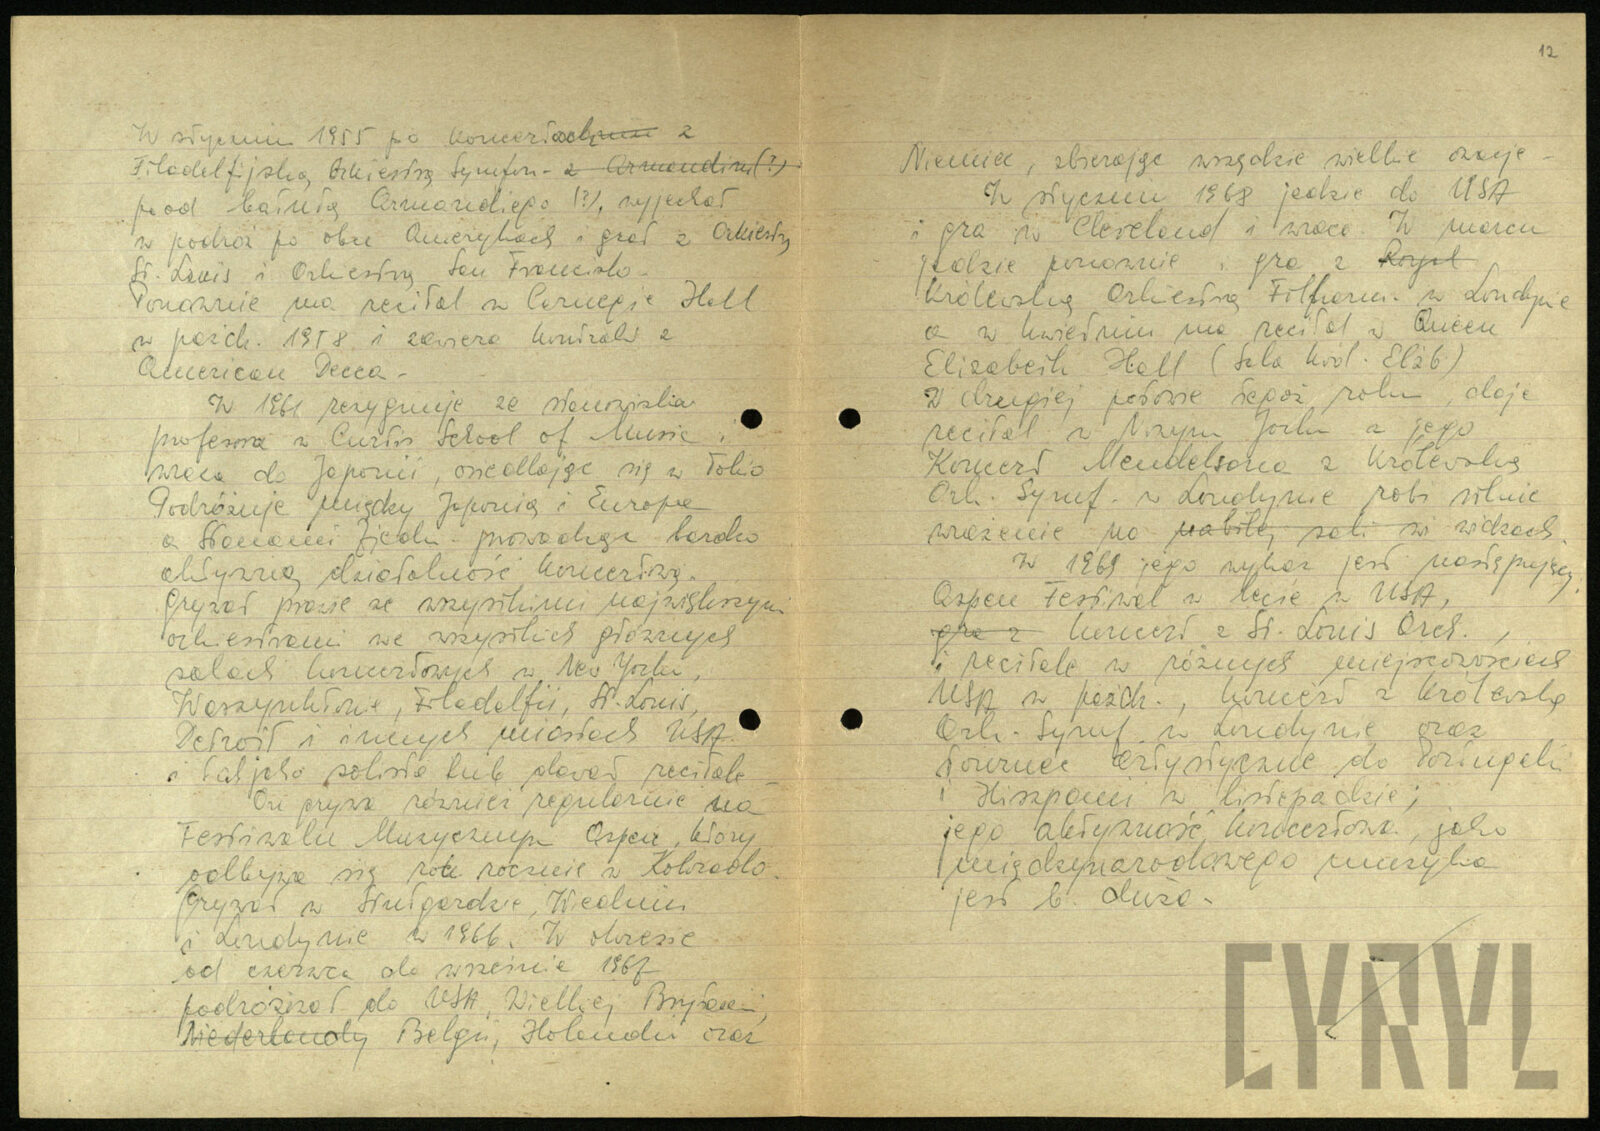 W styczniu 1955 po koncertach z
Filadelfijską Orkiestrą Symfon. z Armandim (?)
pod batutą Armandiego (?), wyjechał
w podróż po obu Amerykach i grał z Orkiestrą
St. Louis i Orkiestrą San Francisko.
Ponownie ma recital w Carnegie Hall
w paźdz. 1958 i zawiera kontrakt z
American Decca.
W 1961 rezygnuje ze stanowiska
profesora w Curtis School of Music i
wraca do Japonii, osiedlając się w Tokio
Podróżuje między Japonią i Europą
a Stanami Zjedn. prowadząc bardzo
aktywną działalność koncertową.
Grywał prawie ze wszystkimi największymi
orkiestrami we wszystkich głównych
salach koncertowych w New Yorku,
Waszynktonie, Filadelfii, St. Louis,
Detroit i innych miastach USA
i tak jako solista lub dawał recitale
On grywa również regularnie na
Festiwalu Muzycznym Aspen, który
odbywa się rok rocznie w Kolorado.
Grywał w Stutgardzie, Wiedniu
i Londynie w 1966. W okresie
od czerwca do września 1967
podróżował do USA, Wielkiej Brytanii,
Niederlandy Belgii, Holandii oraz
12
Niemiec, zbierając wszędzie wielkie owacje.
W styczniu 1968 jedzie do USA
i gra w Cleveland i wraca. W marcu
jedzie ponownie i gra z Royal
Królewską Orkiestrą Filharm. w Londynie
a w kwietniu ma recital w Queen
Elizabeth Hall (Sala Król. Elżb)
W drugiej połowie tegoż roku, daje
recital w Nowym Jorku a jego
Koncert Mendelsona z Królewską
Ork. Symf. w Londynie robi silne
wrażenie na nabitej sali widzach.
W 1969 jego wykaz jest następujący:
Aspen Festiwal w lecie w USA,
gra z koncert z St. Louis Orch.,
i recitale w różnych miejscowościach
USA w paźdz., koncert z Królewską
Ork. Symf. w Londynie oraz
tournee artystyczne do Portugalii
i Hiszpanii w listopadzie;
jego aktywność koncertowa, jako
międzynarodowego muzyka
jest b. duża.
CYRYL